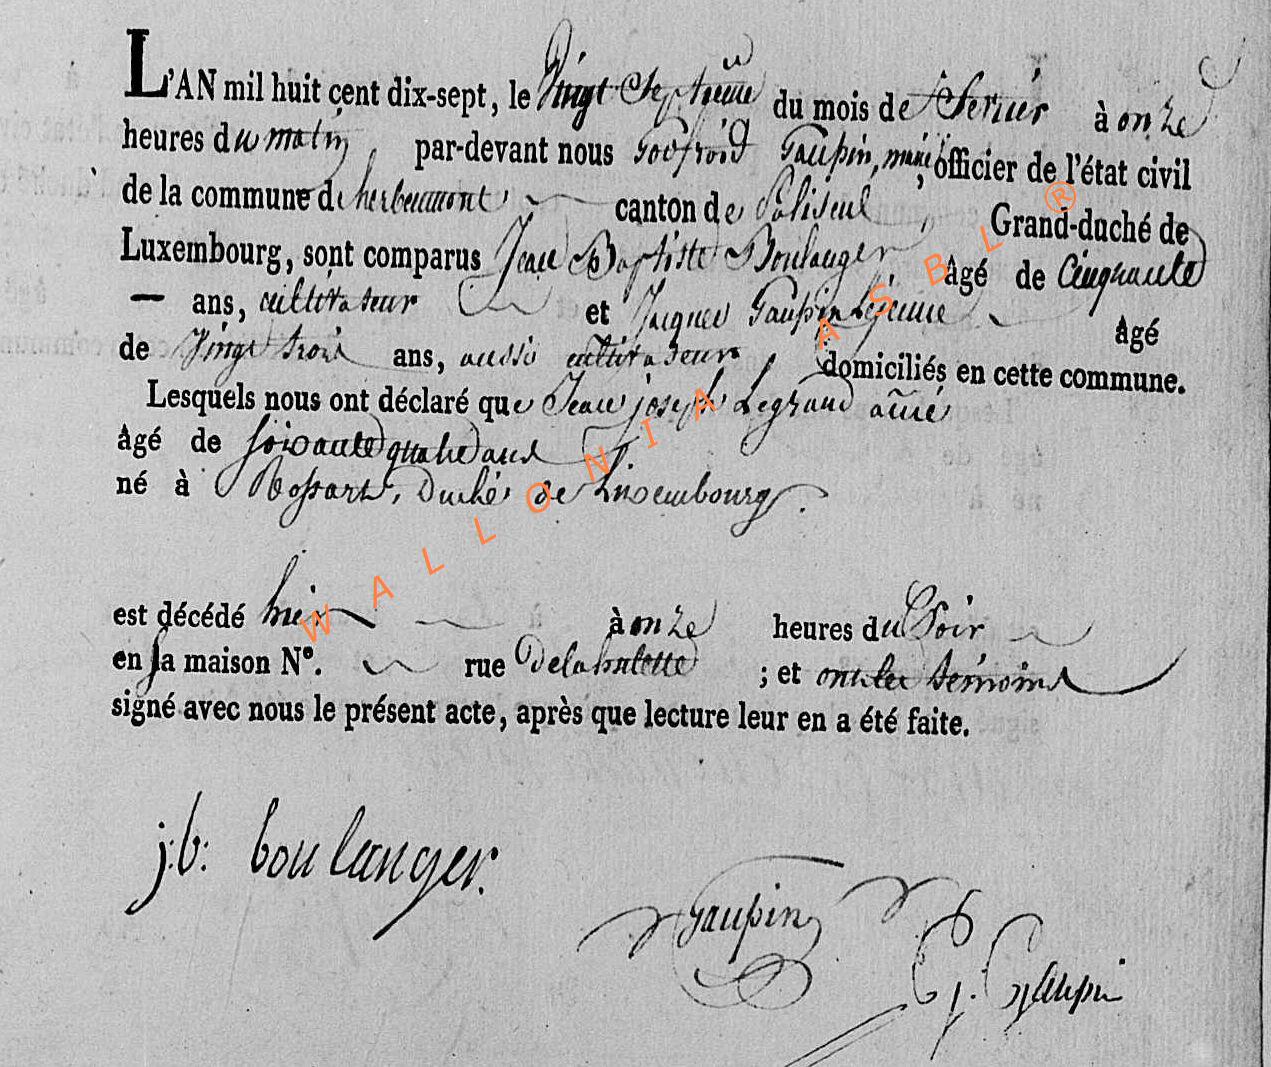 L'AN mil huit cent dix-sept, le vingt Septieme du mois de fevrier à onze
heures du matin, par-devant nous Godfroid Gaupin, maire, officier de l'état civil
de la commune d'herbeumont canton de Paliseul Grand-duché de
Luxembourg, sont comparus Jean Baptiste Boulanger, âgé de Cinquante
— ans, cultivateur et Jacques Gaupin Lejeune âgé
de Vingt trois ans, aussi cultivateur domiciliés en cette commune.
Lesquels nous ont déclaré que Jean joseph Legrand ainé
âgé de soixante quatre ans
né à Rossart, Duché de Luxembourg.
est décédé hier à onze heures du Soir
en sa maison N°. rue De la ; et ont les témoins
signé avec nous le présent acte, après que lecture leur en a été faite.
j:b: boulanger.
Gaupin
G. J. Gaupin
WALLONIA ASBL ®